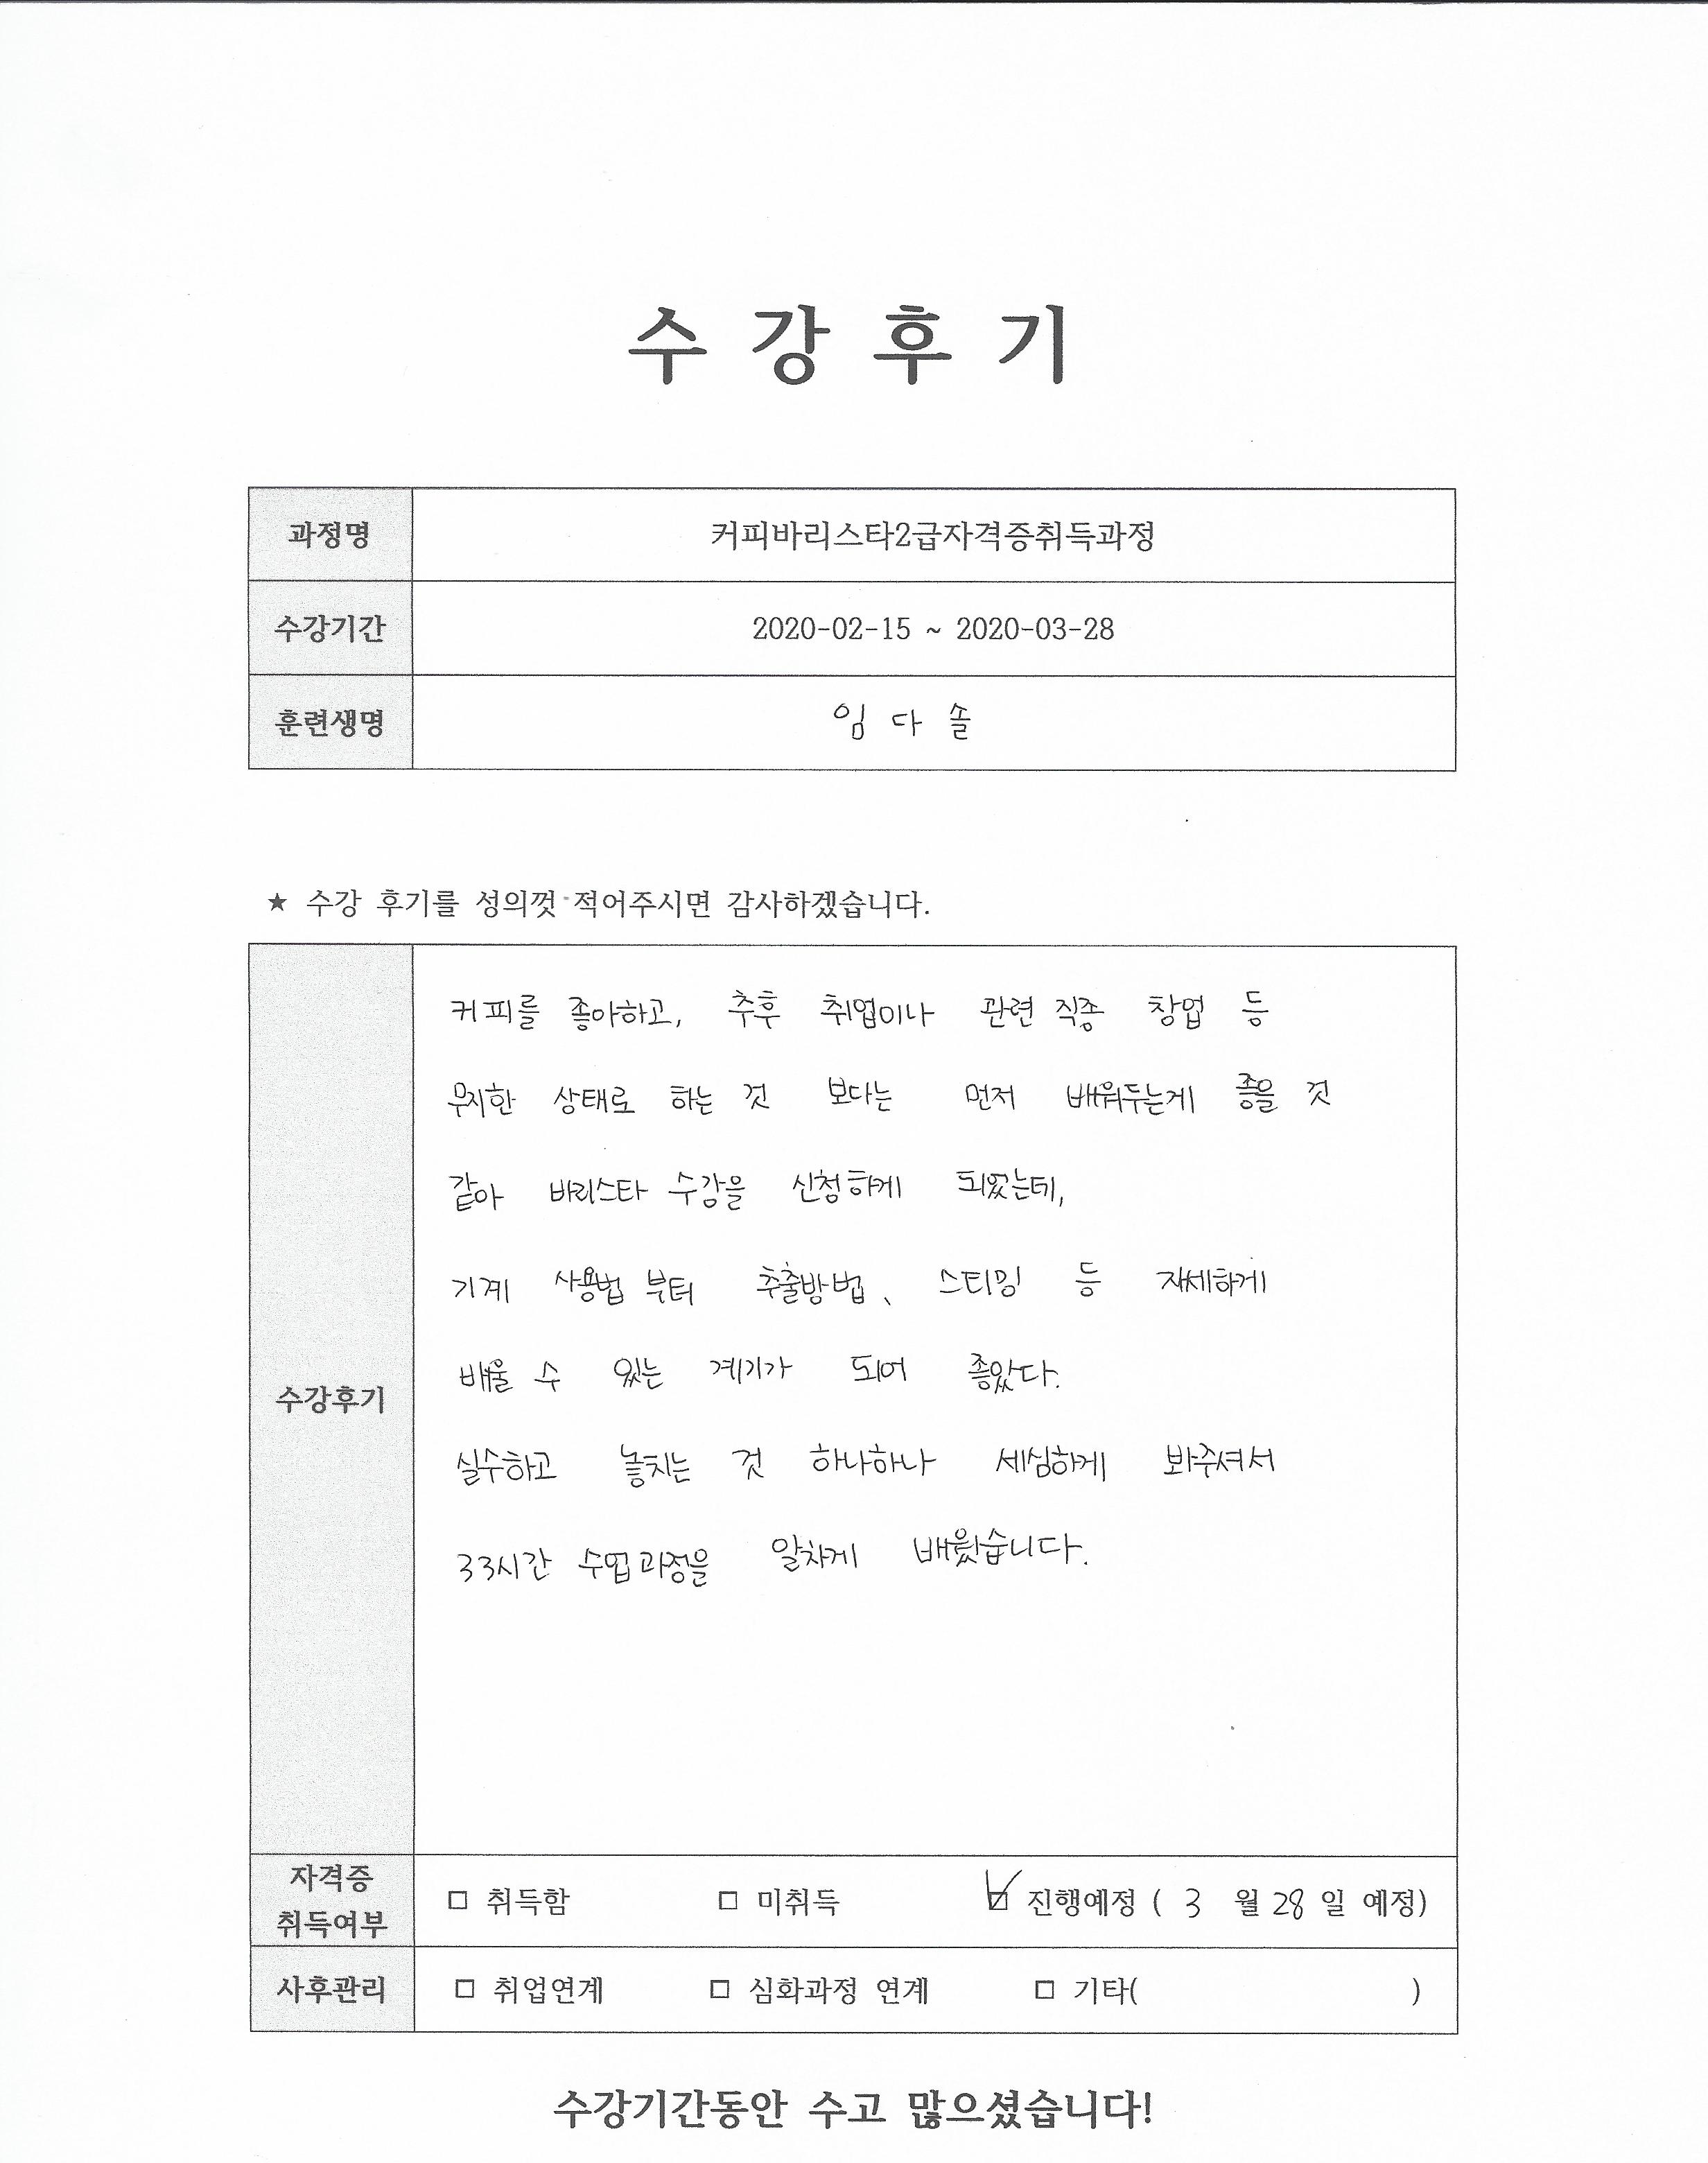 수 강 후 기
과정명 커피바리스타2급자격증취득과정
수강기간 2020-02-15 ~ 2020-03-28
훈련생명 임 다 솔
★ 수강 후기를 성의껏 적어주시면 감사하겠습니다.
커피를 좋아하고, 추후 취업이나 관련 직종 창업 등
무지한 상태로 하는 것 보다는 먼저 배워두는게 좋을 것
같아 바리스타 수강을 신청하게 되었는데,
기계 사용법 부터 추출방법, 스티밍 등 자세하게
배울 수 있는 계기가 되어 좋았다.
수강후기
실수하고 놓치는 것 하나하나 세심하게 봐주셔서
33시간 수업과정을 알차게 배웠습니다.
자격증
취득여부
□ 취득함 □ 미취득 ☑ 진행예정 ( 3 월 28 일 예정)
사후관리 □ 취업연계 □ 심화과정 연계 □ 기타( )
수강기간동안 수고 많으셨습니다!